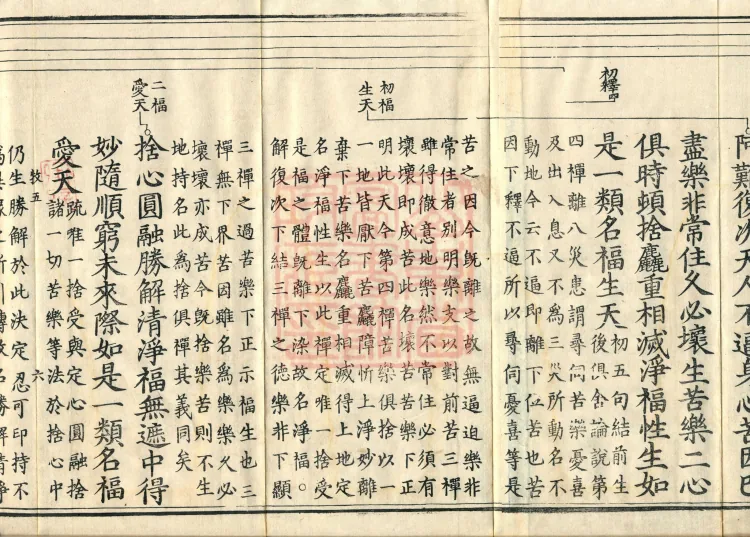 阿難復次天人不逼身心苦因已
盡樂非常住久必壞生苦樂二心
俱時頓捨麤重相滅淨福性生如
是一類名福生天初五句結前生
後俱舍論說第
四禪離八災患謂尋伺苦樂憂喜
及出入息又不為三災所動名不
動地今云不逼即離下位苦也苦
因下釋不逼所以尋伺憂喜等是
初釋
苦之因今旣離之故無逼迫樂非
常住者别明樂支以對前苦三禪
雖得徹意地樂然不常住必須有
壞壞即成苦此名壞苦苦樂下正
明此天今第四禪苦樂俱捨以一
一地皆厭下苦麤障忻上淨妙離
棄下苦樂名麤重相滅得上地定
名淨福性生以此禪定唯一捨受
是福之體旣離下染故名淨福。
解復次下結三禪之德樂非下顯
初福
生天
三禪之過苦樂下正示福生也三
禪無下界苦因雖名為樂樂久必
壞壞亦成苦今旣捨樂苦則不生
地持名此為捨俱禪其義同矣
二福
愛天
捨心圓融勝解清淨福無遮中得
妙隨順窮未來際如是一類名福
愛天疏唯一捨受與定心圓融捨
諸一切苦樂等法於捨心中
仍生勝解於此決定忍可印持不
六